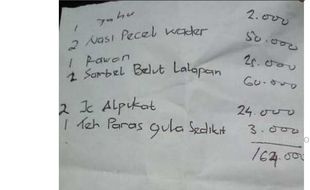 1 Tahu 2.000
2 Nasi Pecel Wader 50.000
1 Rawon 25.000
2 Sambel Belut Lalapan 60.000
2 Jc Alpukat 24.000
1 Teh Panas gula Sedikit 3.000
164.000